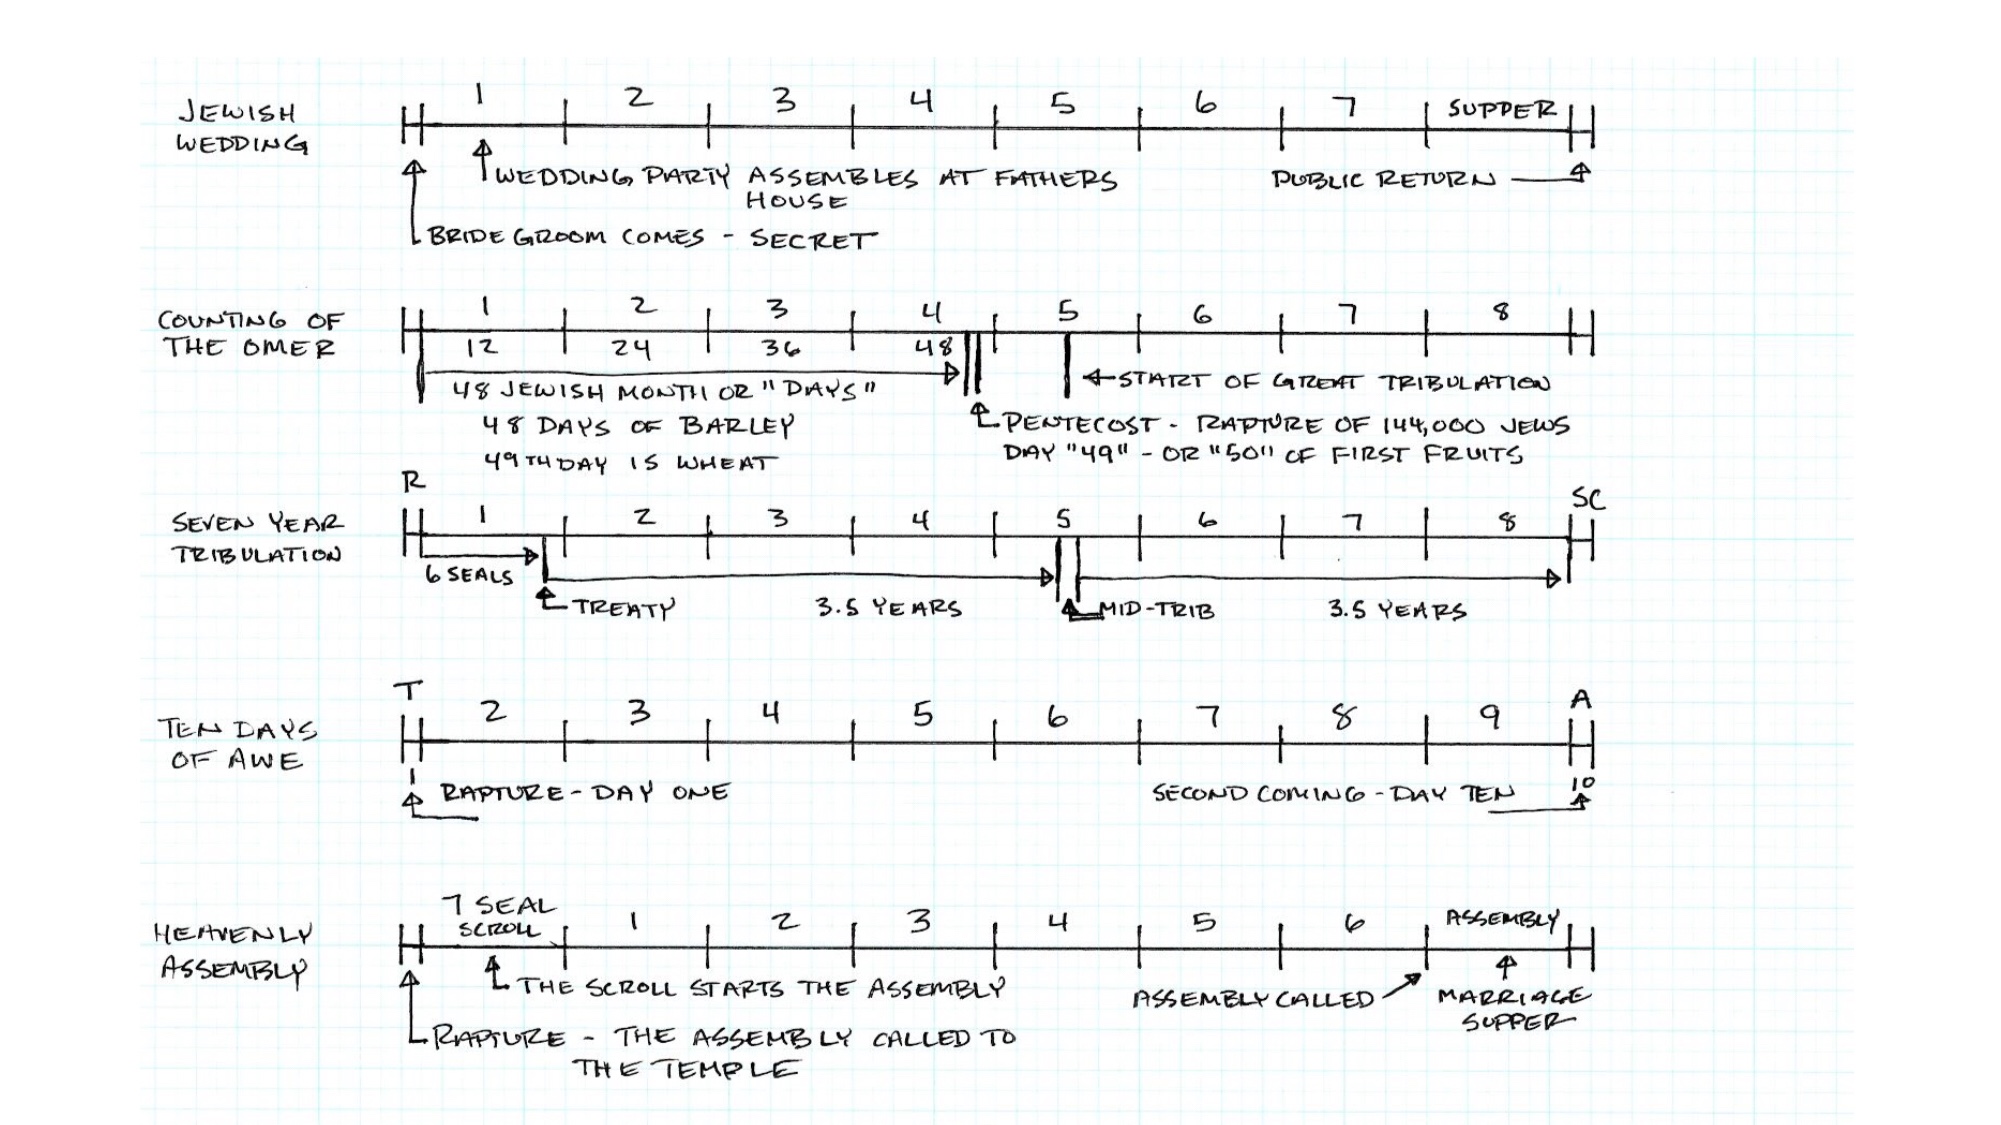 JEWISH
WEDDING
1 2 3 4 5 6 7 SUPPER
WEDDING PARTY ASSEMBLES AT FATHERS
HOUSE
PUBLIC RETURN
BRIDE GROOM COMES - SECRET
COUNTING OF
THE OMER
1 2 3 4 5 6 7 8
12 24 36 48
48 JEWISH MONTH OR "DAYS"
48 DAYS OF BARLEY
49TH DAY IS WHEAT
START OF GREAT TRIBULATION
PENTECOST - RAPTURE OF 144,000 JEWS
DAY "49" - OR "50" OF FIRST FRUITS
R
SC
SEVEN YEAR
TRIBULATION
1 2 3 4 5 6 7 8
6 SEALS
TREATY 3.5 YEARS MID-TRIB 3.5 YEARS
T
A
TEN DAYS
OF AWE
2 3 4 5 6 7 8 9
1
10
RAPTURE - DAY ONE
SECOND COMING - DAY TEN
HEAVENLY
ASSEMBLY
7 SEAL
SCROLL
1 2 3 4 5 6 ASSEMBLY
THE SCROLL STARTS THE ASSEMBLY
ASSEMBLY CALLED
MARRIAGE
SUPPER
RAPTURE - THE ASSEMBLY CALLED TO
THE TEMPLE